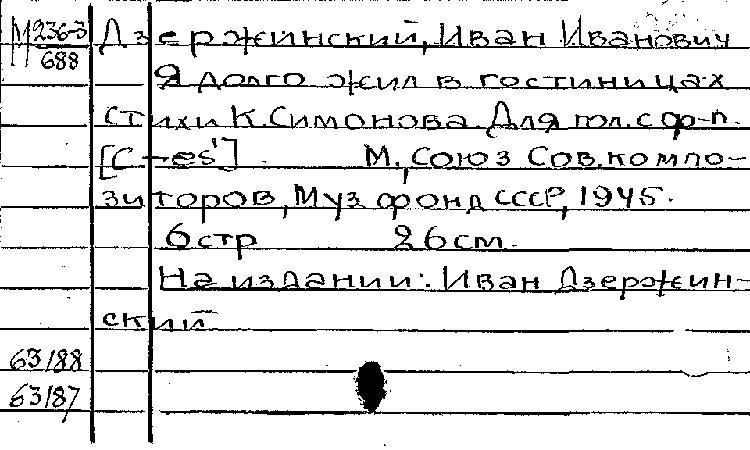 М 236-3/688 Дзержинский, Иван Иванович
Я долго жил в гостиницах
стихи К. Симонова. Для гол. с ф-п.
[c – es¹] М., Союз Сов. компо-
зиторов, Муз фонд СССР, 1945.
6 стр 26 см.
На издании: Иван Дзержин-
ский
63/88
63/87